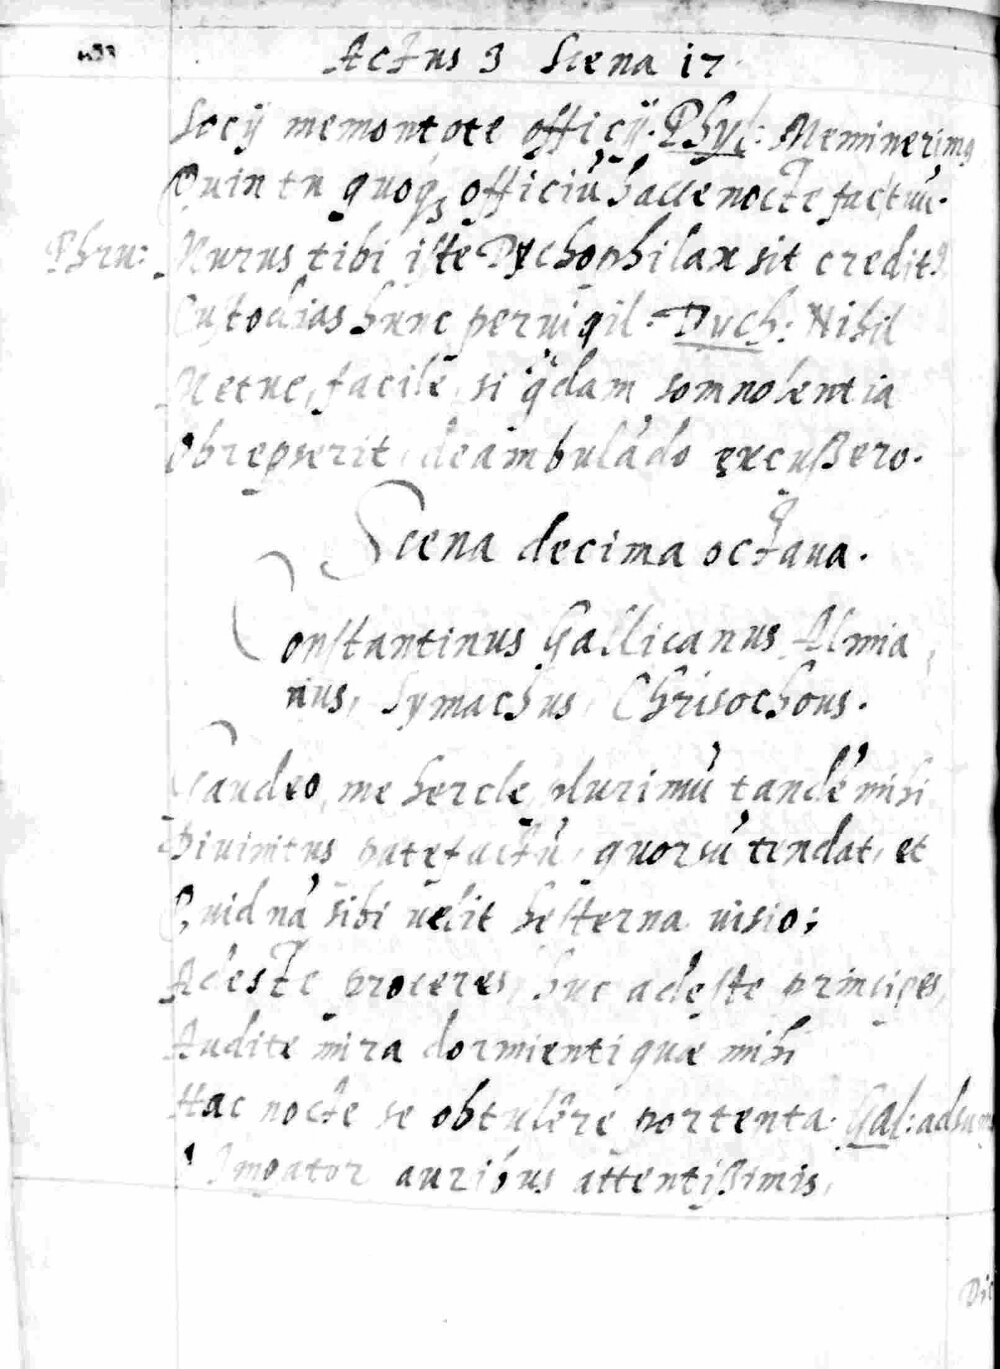 Actus 3 Scena 17
Socij mementote officij. Phyl: Meminerimq
Quin tu quoq; officiũ hacce nocte factũ.
Phru: Nurus tibi iste Psychophilax sit credit9
Custodias hunc peruigil. Dych: Nihil
Metue, facile, si q̃dam somnolentia
Obrepserit deambulãdo excußero.
Scena decima octaua.
Constantinus Gallicanus Almia
nus, Symachus, Chrisochous.
Gaudeo me hercle plurimũ tandẽ mihi
Diuinitus patefactũ, quorsũ tendat, et
Quid nã sibi uelit hesterna uisio;
Adeste proceres, huc adeste principes,
Audite mira dormienti quæ mihi
Hac nocte se obtulêre portenta. Gal: adsum
Impator auribus attentißimis,